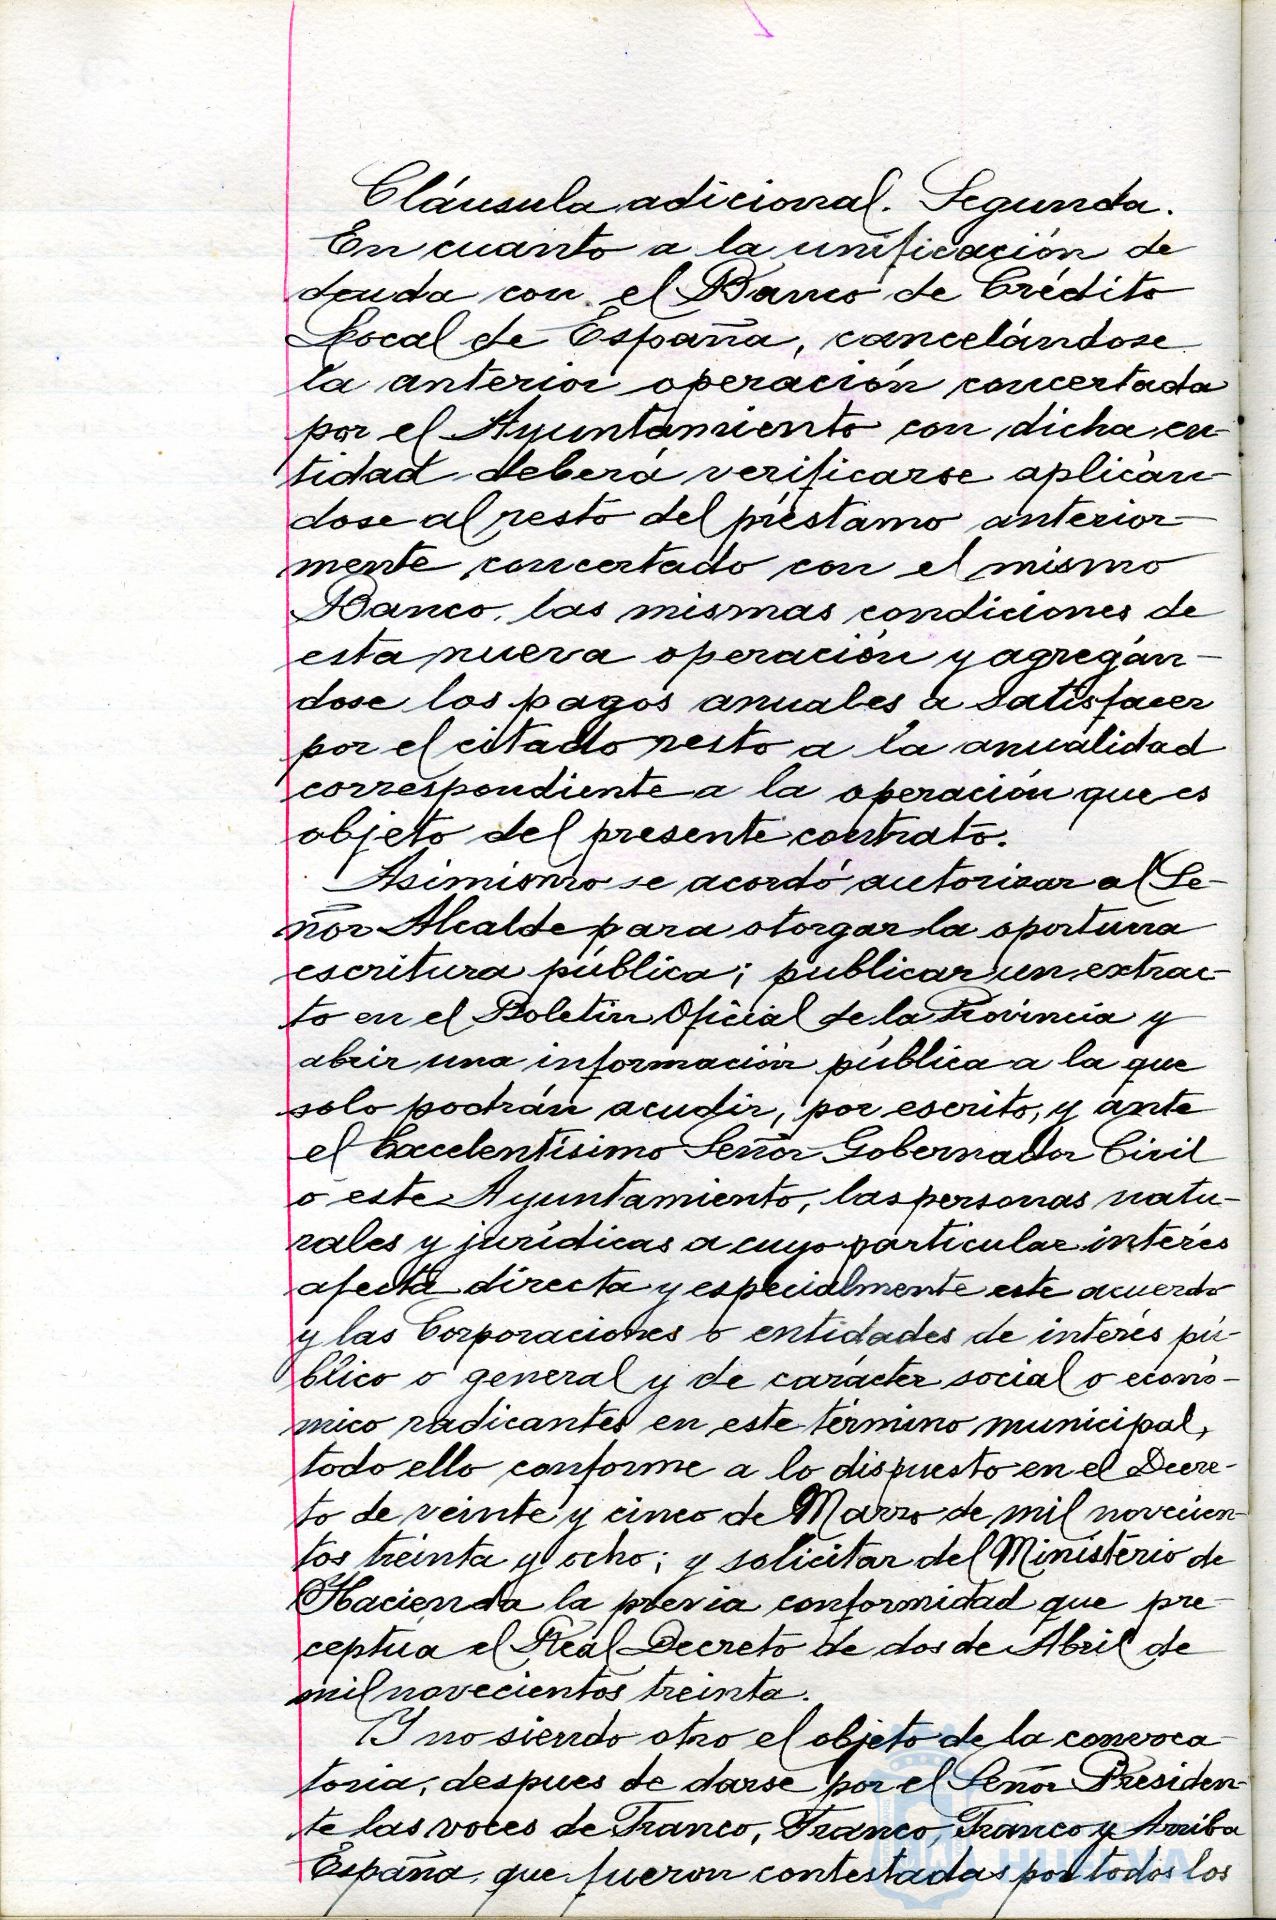 Cláusula adicional. Segunda.
En cuanto a la unificación de
deuda con el Banco de Crédito
Local de España, cancelándose
la anterior operación concertada
por el Ayuntamiento con dicha en-
tidad deberá verificarse aplicán-
dose al resto del préstamo anterior-
mente concertado con el mismo
Banco, las mismas condiciones de
esta nueva operación y agregán-
dose los pagos anuales a satisfacer
por el citado resto a la anualidad
correspondiente a la operación que es
objeto del presente contrato.
Asimismo se acordó autorizar al Se-
ñor Alcalde para otorgar la oportuna
escritura pública; publicar un extrac-
to en el Boletin Oficial de la Provincia y
abrir una información pública a la que
solo podrán acudir, por escrito, y ante
el Excelentísimo Señor Gobernador Civil
o este Ayuntamiento, las personas natu-
rales y jurídicas a cuyo particular interés
afecta directa y especialmente este acuerdo
y las Corporaciones o entidades de interés pú-
blico o general y de carácter social o econó-
mico radicantes en este término municipal,
todo ello conforme a lo dispuesto en el Decre-
to de veinte y cinco de Marzo de mil novecien-
tos treinta y ocho; y solicitar del Ministerio de
Hacienda la previa conformidad que pre-
ceptua el Real Decreto de dos de Abril de
mil novecientos treinta.
Y no siendo otro el objeto de la convoca-
toria, despues de darse por el Señor Presiden-
te las voces de Franco, Franco, Franco y Arriba
España, que fueron contestadas por todos los
HUELVA